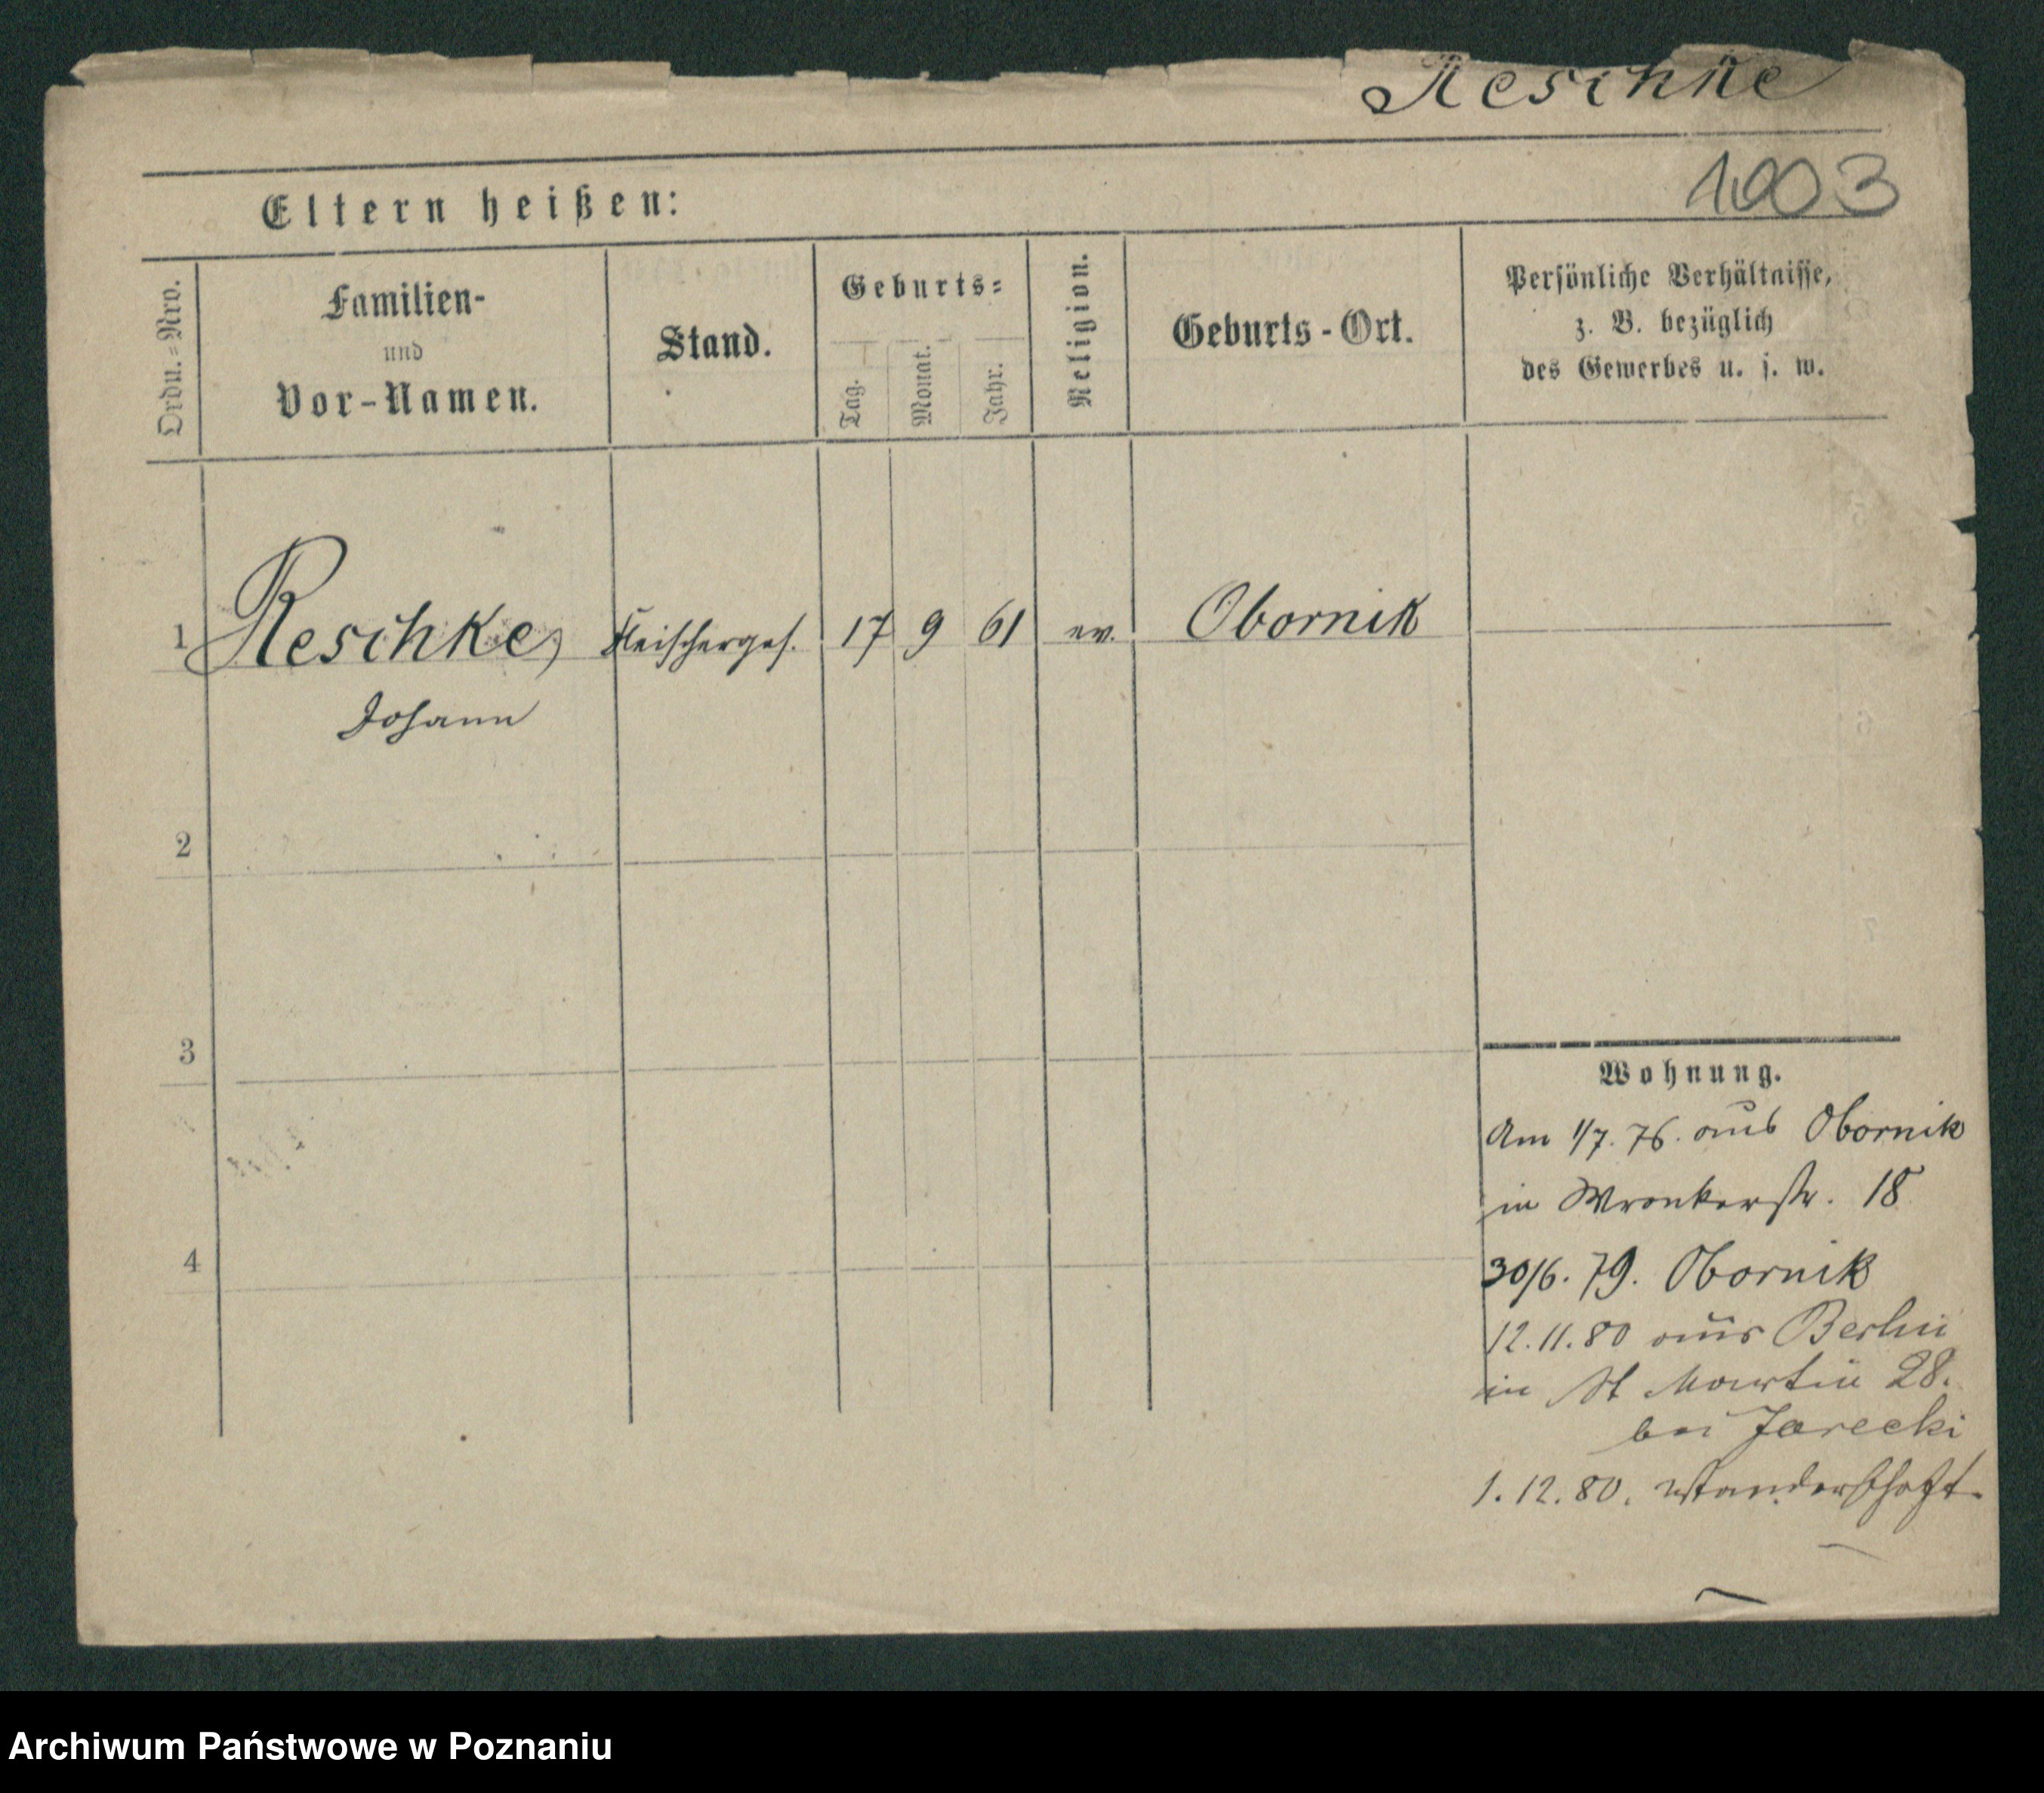 Reschke
1003
Eltern heißen:
Ordn.=Nro.
Familien-
und
Vor-Namen.
Stand.
Geburts=
Tag.
Monat.
Jahr.
Religion.
Geburts-Ort.
Persönliche Verhältnisse,
z. B. bezüglich
des Gewerbes u. s. w.
1 Reschke, Fleischerges. 17 9 61 ev. Obornik
Johann
2
3
4
Wohnung.
Am 1/7. 76. aus Obornik
in Wronkerstr. 18
30/6. 79. Obornik
12.11.80 aus Berlin
in St Martin 28.
bei Jarecki
1.12.80. Wanderschaft.
Archiwum Państwowe w Poznaniu